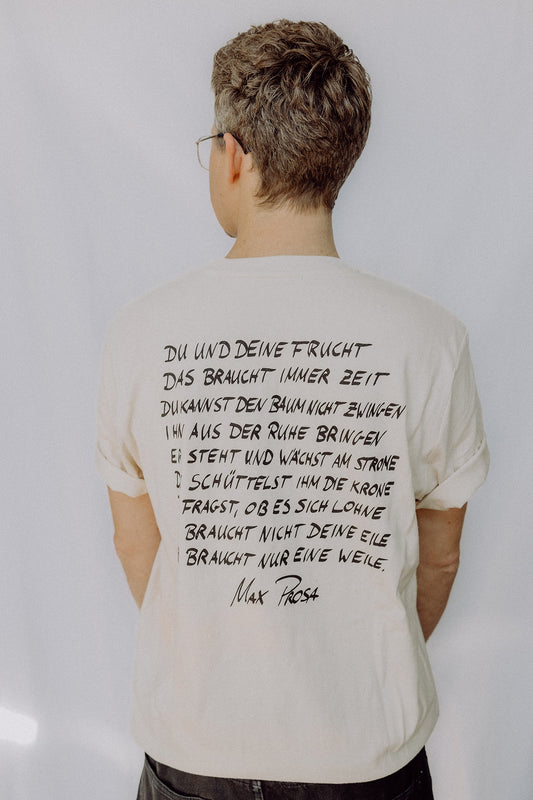 DU UND DEINE FRUCHT
DAS BRAUCHT IMMER ZEIT
DU KANNST DEN BAUM NICHT ZWINGEN
IHN AUS DER RUHE BRINGEN
ER STEHT UND WÄCHST AM STROME
SCHÜTTELST IHM DIE KRONE
FRAGST, OB ES SICH LOHNE
BRAUCHT NICHT DEINE EILE
BRAUCHT NUR EINE WEILE.
MAX PROSA